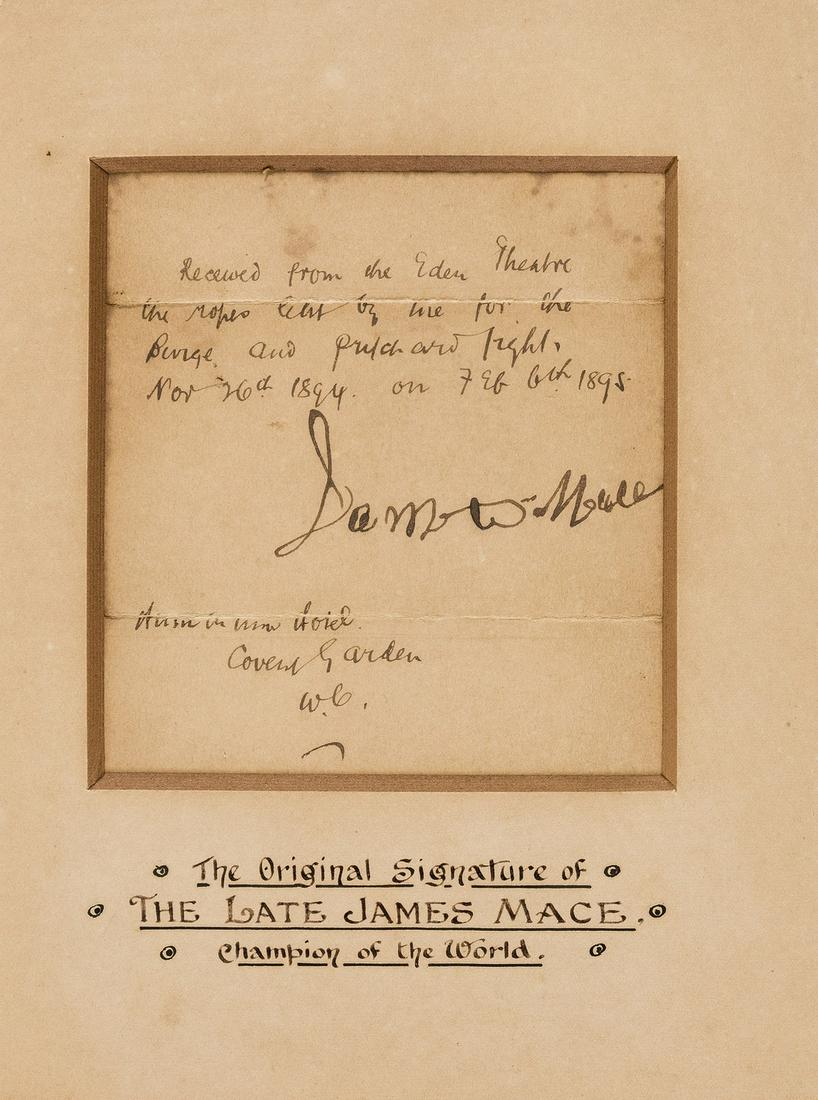 Received from the Eden Theatre
the ropes lent by me for the
Burge and Pritchard fight.
Nov 26th 1894. on Feb 6th 1895
James Mace
Hotel.
Covent Garden
W.C.
The Original Signature of
THE LATE JAMES MACE.
Champion of the World.